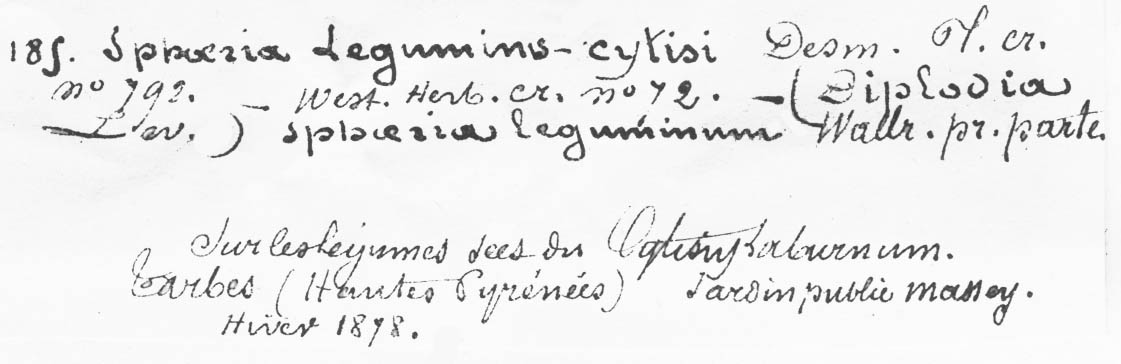 185. Sphæria Legumino-cytisi Desm. Pl. cr.
nº 792. — West. Herb. cr. nº 72. — (Diplodia
Lev.) Sphæria leguminum Wallr. pr. parte.
Sur les légumes secs du Cytisus Laburnum.
Tarbes (Hautes Pyrénées) Jardin public Massey.
Hiver 1878.